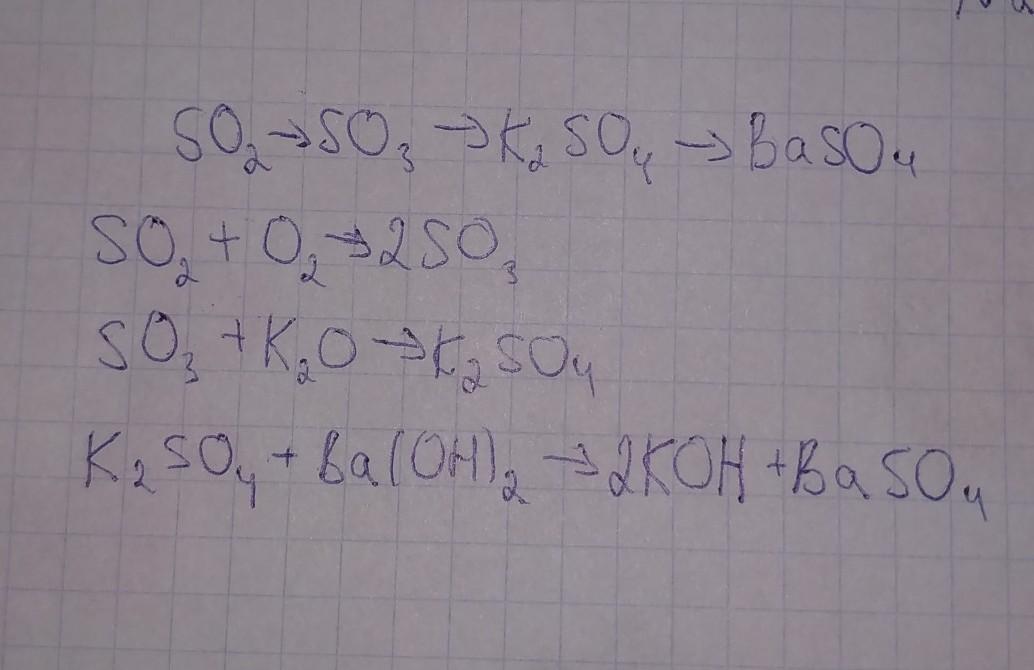 SO₂→SO₃→K₂SO₄→BaSO₄
SO₂+O₂→2SO₃
SO₃+K₂O→K₂SO₄
K₂SO₄+Ba(OH)₂→2KOH+BaSO₄